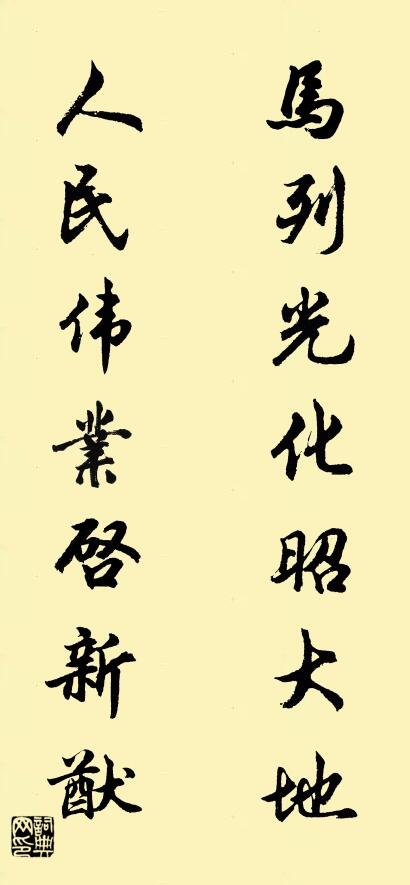 馬列光化昭大地
人民伟業啓新猷
詞典网印